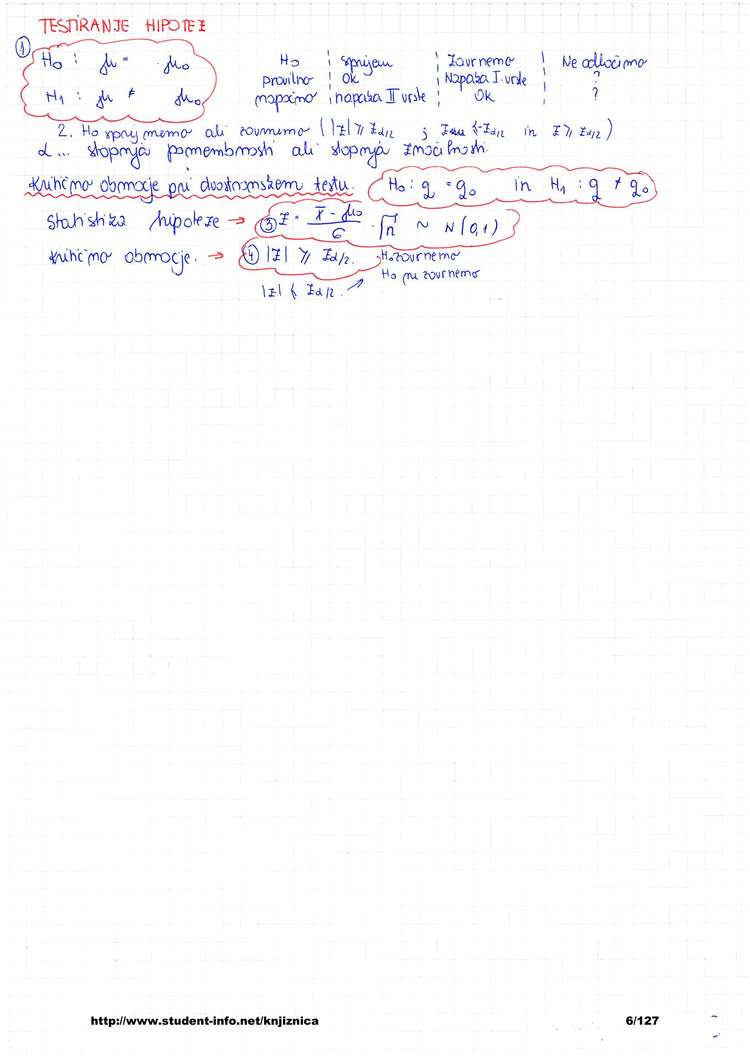 TESTIRANJE HIPOTEZ
① H₀ : μ = μ₀
H₁ : μ ≠ μ₀
H₀ | sprijem | Zavrnemo | Ne odločimo
pravilno | OK | Napaka I. vrste | ?
napačno | napaka II vrste | OK | ?
2. H₀ sprejmemo ali zavrnemo ( |Z| ≥ Zα/2 ; ≤ -Zα/2 in Z ≥ Zα/2 )
α ... stopnja pomembnosti ali stopnja značilnosti.
Kritično območje pri dvostranskem testu. H₀ : q = q₀ in H₁ : q ≠ q₀
Statistika hipoteze → ③ Z = (X̄ - μ₀)/σ · √n ~ N(0,1)
Kritično območje. → ④ |Z| ≥ Zα/2. H₀ zavrnemo
|Z| < Zα/2. → H₀ ne zavrnemo
http://www.student-info.net/knjiznica 6/127